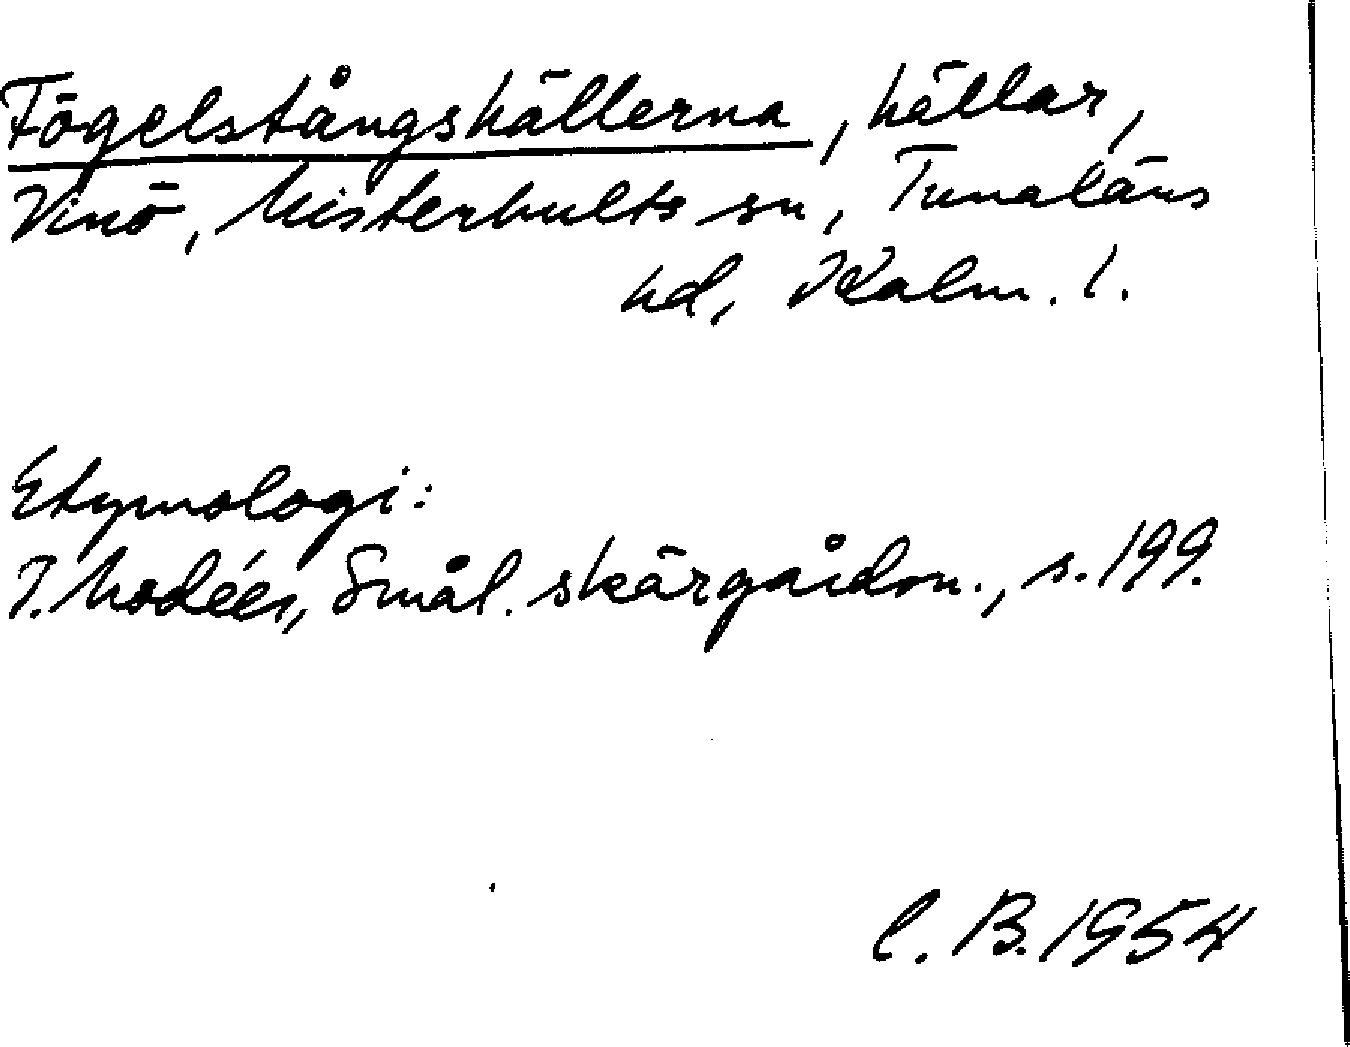 Fögelstångshällerna, hällar,
Vinö, Misterhults sn, Tunaläns
hd, Kalm. l.
Etymologi:
T. Modéer, Smål. skärgårdsn., s. 199.
C. B. 1954